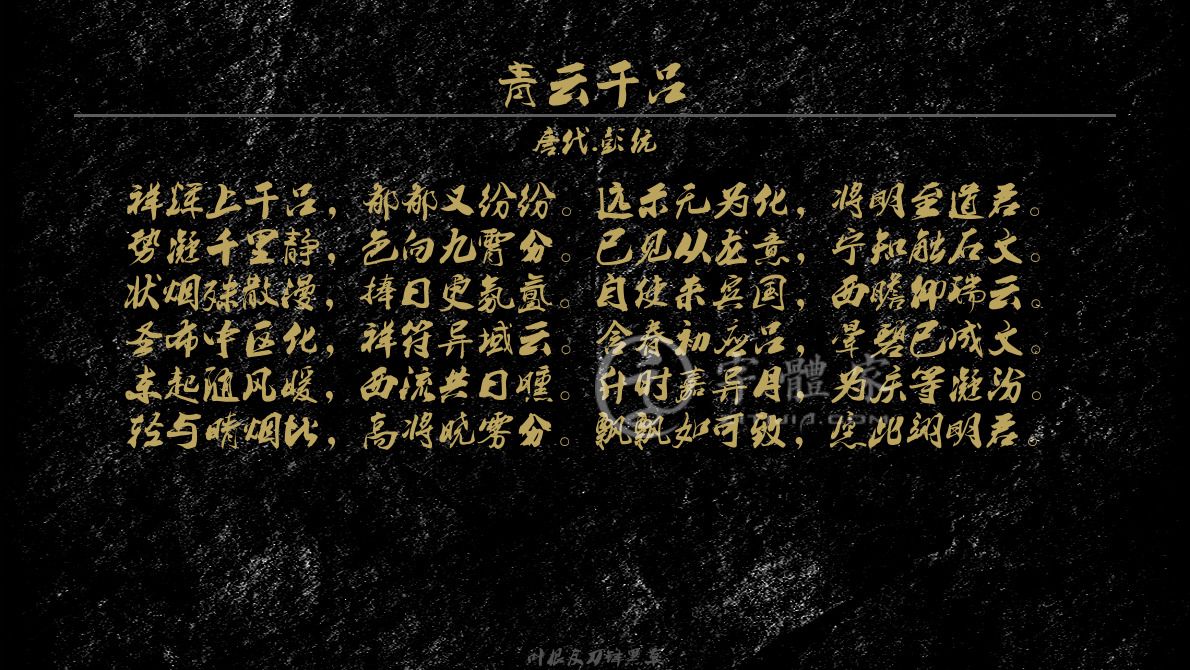 青云干吕
唐代.彭伉
祥辉上干吕，郁郁又纷纷。远示无为化，将明至道君。
势凝千里静，色向九霄分。已见从龙意，宁知触石文。
状烟殊散漫，捧日更氛氲。自使来宾国，西瞻仰瑞云。
圣布中区化，祥符异域云。含春初应吕，晕碧已成文。
东起随风暖，西流共日曛。计时嘉异月，为庆等凝汾。
轻与晴烟比，高将晓雾分。飘飘如可致，愿此翊明君。
字體家